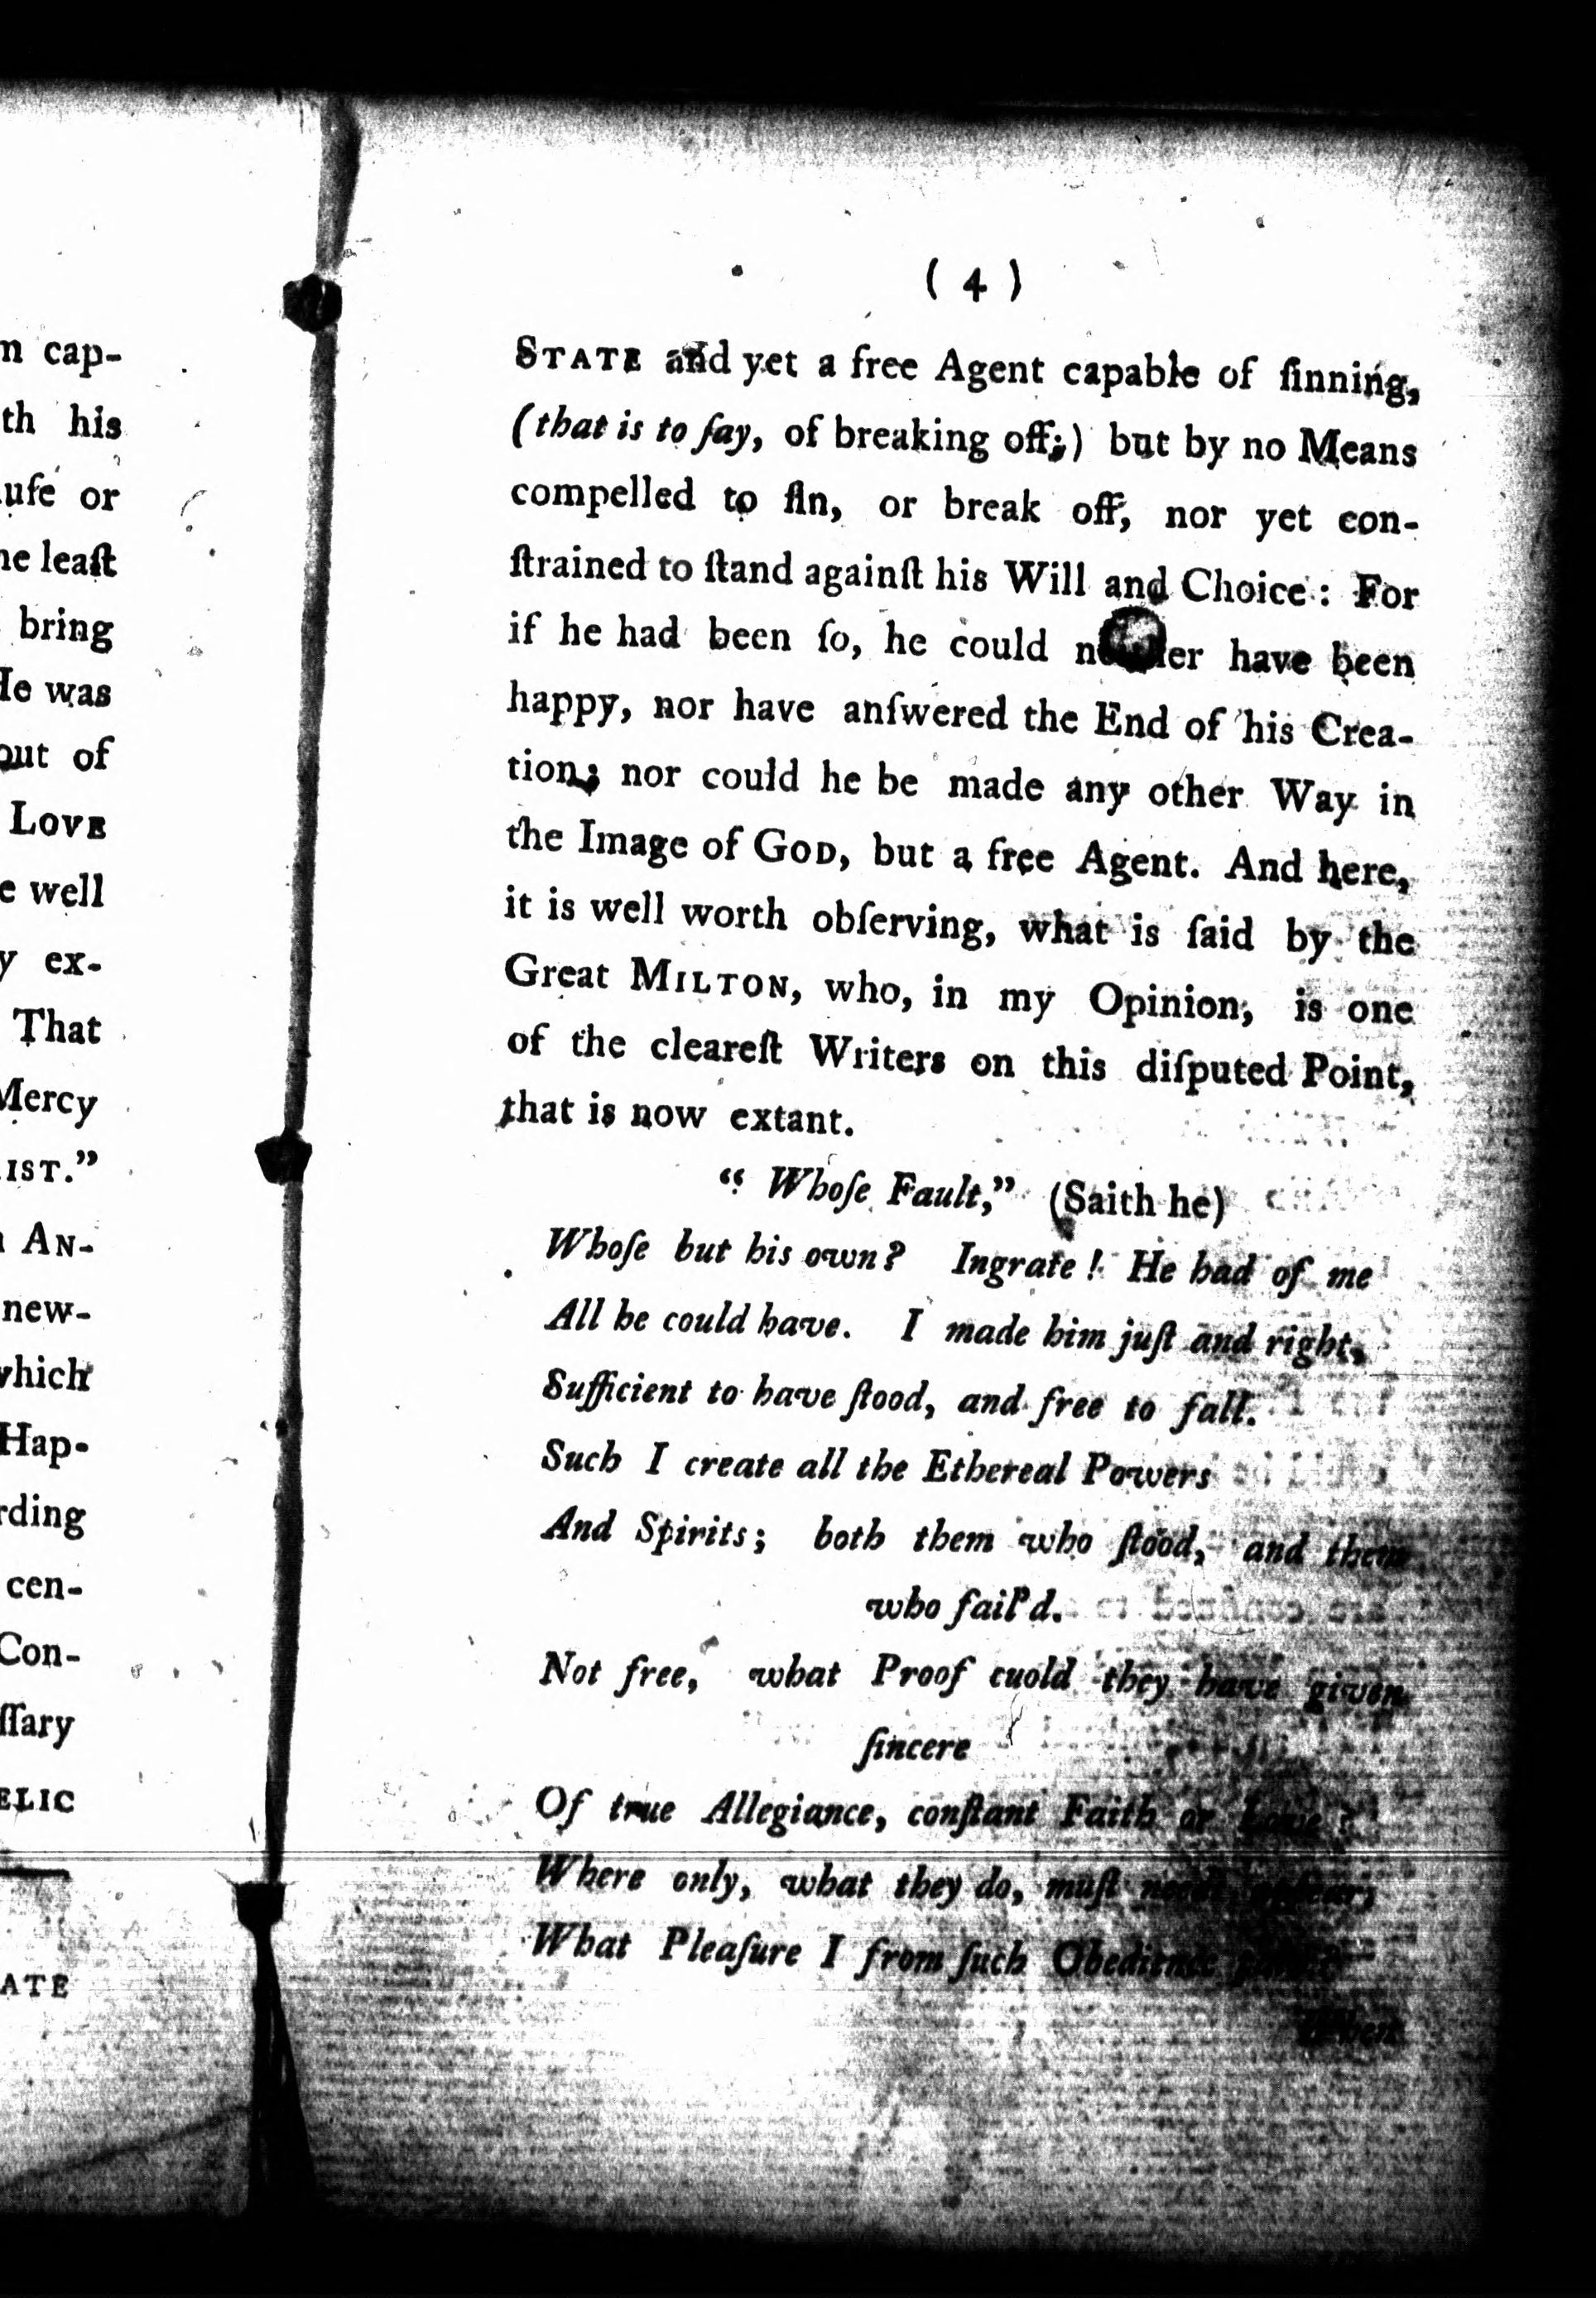 n cap-
th his
ufe or
he leaſt
bring
He was
out of
LOVE
e well
y ex-
That
Mercy
IST.”
AN-
new-
which
Hap-
rding
cen-
Con-
ſſary
ELIC
ATE
( 4 )
STATE and yet a free Agent capable of ſinning,
(that is to ſay, of breaking off;) but by no Means
compelled to ſin, or break off, nor yet con-
ſtrained to ſtand againſt his Will and Choice: For
if he had been ſo, he could neither have been
happy, nor have anſwered the End of his Crea-
tion; nor could he be made any other Way in
the Image of GOD, but a free Agent. And here,
it is well worth obſerving, what is ſaid by the
Great MILTON, who, in my Opinion, is one
of the cleareſt Writers on this diſputed Point,
that is now extant.
“ Whoſe Fault,” (Saith he)
Whoſe but his own? Ingrate! He had of me
All he could have. I made him juſt and right,
Sufficient to have ſtood, and free to fall.
Such I create all the Ethereal Powers
And Spirits; both them who ſtood, and them
who fail'd.
Not free, what Proof cuold they have given
ſincere
Of true Allegiance, conſtant Faith or Love?
Where only, what they do, muſt needs appear,
What Pleaſure I from ſuch Obedience
When